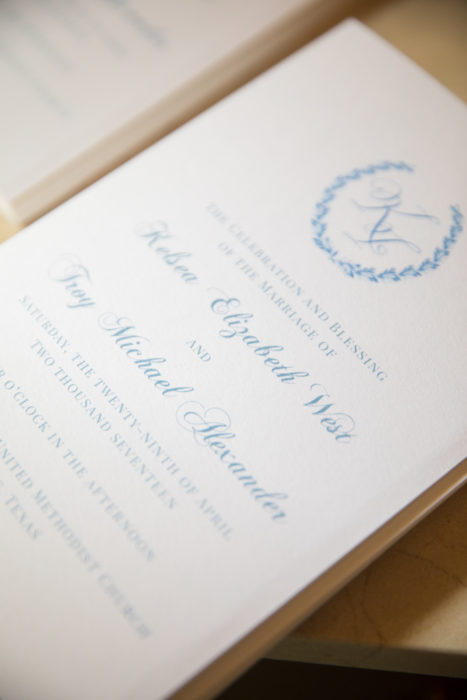 THE CELEBRATION AND BLESSING
OF THE MARRIAGE OF
Kelsea Elizabeth West
AND
Troy Michael Alexander
SATURDAY, THE TWENTY-NINTH OF APRIL
TWO THOUSAND SEVENTEEN
O'CLOCK IN THE AFTERNOON
UNITED METHODIST CHURCH
TEXAS